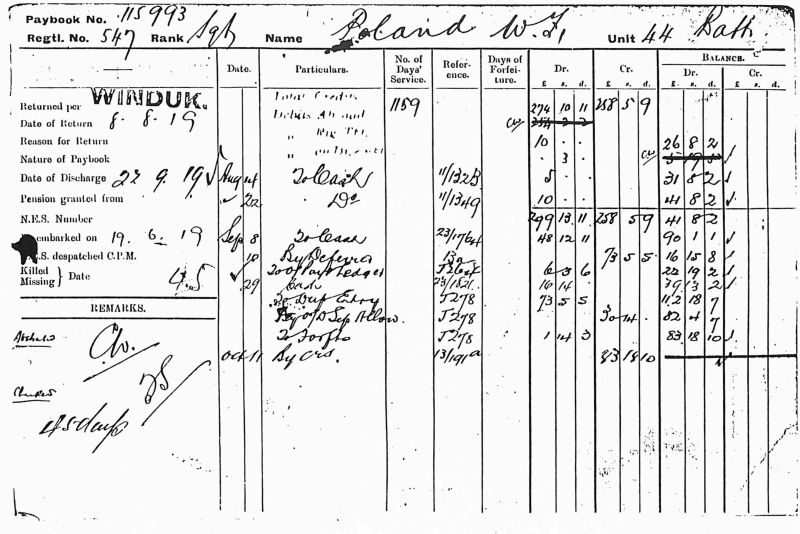 Paybook No. 115993
Regtl. No. 547 Rank Sgt Name Poland W.F. Unit 44 Batt
Date. Particulars. No. of Days' Service. Refer- ence. Days of Forfei- ture. Dr. Cr. BALANCE. Dr. Cr.
£ s. d. £ s. d. £ s. d.
Returned per WINDUK. Total Credits 1159 274 10 11 258 5 9
Date of Return 8. 8. 19 Debits Abroad
Reason for Return 10 26 8 2
Nature of Paybook 3
Date of Discharge 22 9. 19 Aug 14 To Cash 11/1323 5 31 8 2
Pension granted from 22 Do 11/1349 10 41 8 2
N.E.S. Number 299 13 11 258 5 9 41 8 2
embarked on 19. 6. 19 Sep 8 To Cash 23/1764 48 12 11 90 1 1
N.E.S. despatched C.P.M. 10 By Deferred 13a 73 5 5 16 15 8
Killed Missing } Date 4.5 To O/Pay Ledger 6 3 6 22 19 2
29 Cash 23/1821 16 14 39 13 2
REMARKS. To Dup Entry J278 73 5 5 112 18 7
Sep Allow. J278 30 14 82 4 7
To Forfts J278 1 14 3 83 18 10
Oct 11 By Crs. 13/191a 83 18 10
Cw.
Checked
45 days